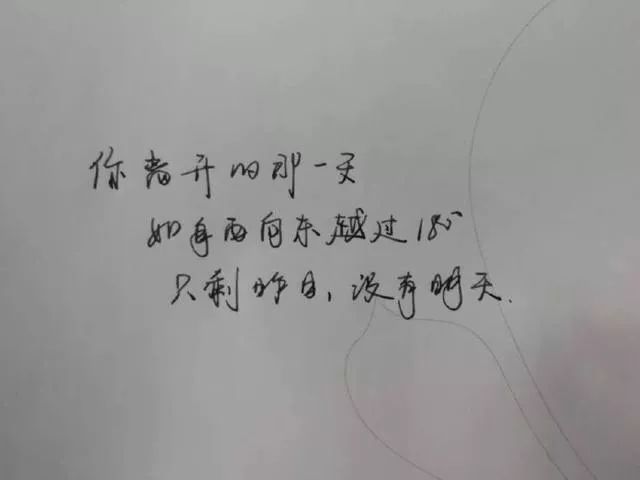 你离开的那一天
如自西向东越过180°
只剩昨日，没有明天.